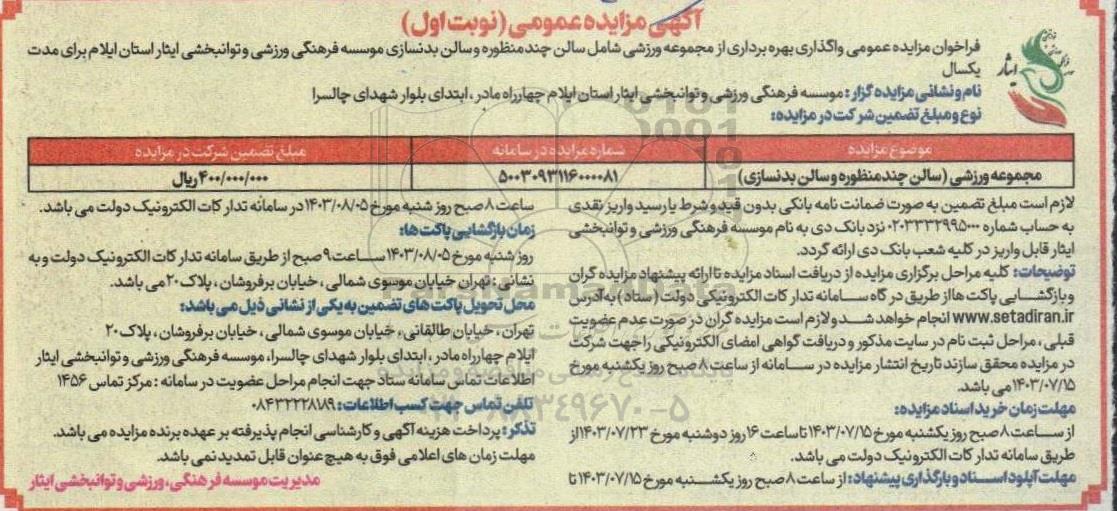 آگهی مزایده عمومی (نوبت اول)
ایثار
فراخوان مزایده عمومی واگذاری بهره برداری از مجموعه ورزشی شامل سالن چند منظوره و سالن بدنسازی موسسه فرهنگی ورزشی و توانبخشی ایثار استان ایلام برای مدت
یکسال
نام و نشانی مزایده گزار: موسسه فرهنگی ورزشی و توانبخشی ایثار استان ایلام چهارراه مادر، ابتدای بلوار شهدای چالسرا
نوع و مبلغ تضمین شرکت در مزایده:
موضوع مزایده	شماره مزایده در سامانه	مبلغ تضمین شرکت در مزایده
مجموعه ورزشی (سالن چند منظوره و سالن بدنسازی)	۵۰۰۳۰۹۳۱۱۶۰۰۰۰۸۱	۴۰۰/۰۰۰/۰۰۰ ریال
لازم است مبلغ تضمین به صورت ضمانت نامه بانکی بدون قید و شرط یا رسید واریز نقدی
به حساب شماره ۰۲۰۳۳۳۲۹۹۵۰۰۰ نزد بانک دی به نام موسسه فرهنگی ورزشی و توانبخشی
ایثار قابل واریز در کلیه شعب بانک دی ارائه گردد.
توضیحات: کلیه مراحل برگزاری مزایده از دریافت اسناد مزایده تا ارائه پیشنهاد مزایده گران
و بازگشایی پاکت ها از طریق درگاه سامانه تدارکات الکترونیکی دولت (ستاد) به آدرس
www.setadiran.ir انجام خواهد شد و لازم است مزایده گران در صورت عدم عضویت
قبلی، مراحل ثبت نام در سایت مذکور و دریافت گواهی امضای الکترونیکی را جهت شرکت
در مزایده محقق سازند تاریخ انتشار مزایده در سامانه از ساعت ۸ صبح روز یکشنبه مورخ
۱۴۰۳/۰۷/۱۵ می باشد.
مهلت زمان خرید اسناد مزایده:
از ساعت ۸ صبح روز یکشنبه مورخ ۱۴۰۳/۰۷/۱۵ تا ساعت ۱۶ روز دوشنبه مورخ ۱۴۰۳/۰۷/۲۳ از
طریق سامانه تدارکات الکترونیک دولت می باشد.
مهلت آپلود اسناد و بارگذاری پیشنهاد: از ساعت ۸ صبح روز یکشنبه مورخ ۱۴۰۳/۰۷/۱۵ تا
ساعت ۸ صبح روز شنبه مورخ ۱۴۰۳/۰۸/۰۵ در سامانه تدارکات الکترونیک دولت می باشد.
زمان بازگشایی پاکت ها:
روز شنبه مورخ ۱۴۰۳/۰۸/۰۵ ساعت ۹ صبح از طریق سامانه تدارکات الکترونیک دولت و به
نشانی: تهران خیابان موسوی شمالی، خیابان برفروشان، پلاک ۲۰ می باشد.
محل تحویل پاکت های تضمین به یکی از نشانی ذیل می باشد:
تهران، خیابان طالقانی، خیابان موسوی شمالی، خیابان برفروشان، پلاک ۲۰
ایلام چهارراه مادر، ابتدای بلوار شهدای چالسرا، موسسه فرهنگی ورزشی و توانبخشی ایثار
اطلاعات تماس سامانه ستاد جهت انجام مراحل عضویت در سامانه: مرکز تماس ۱۴۵۶
تلفن تماس جهت کسب اطلاعات: ۰۸۴۳۲۲۲۸۱۸۹
تذکر: پرداخت هزینه آگهی و کارشناسی انجام پذیرفته بر عهده برنده مزایده می باشد.
مهلت زمان های اعلامی فوق به هیچ عنوان قابل تمدید نمی باشد.
مدیریت موسسه فرهنگی، ورزشی و توانبخشی ایثار